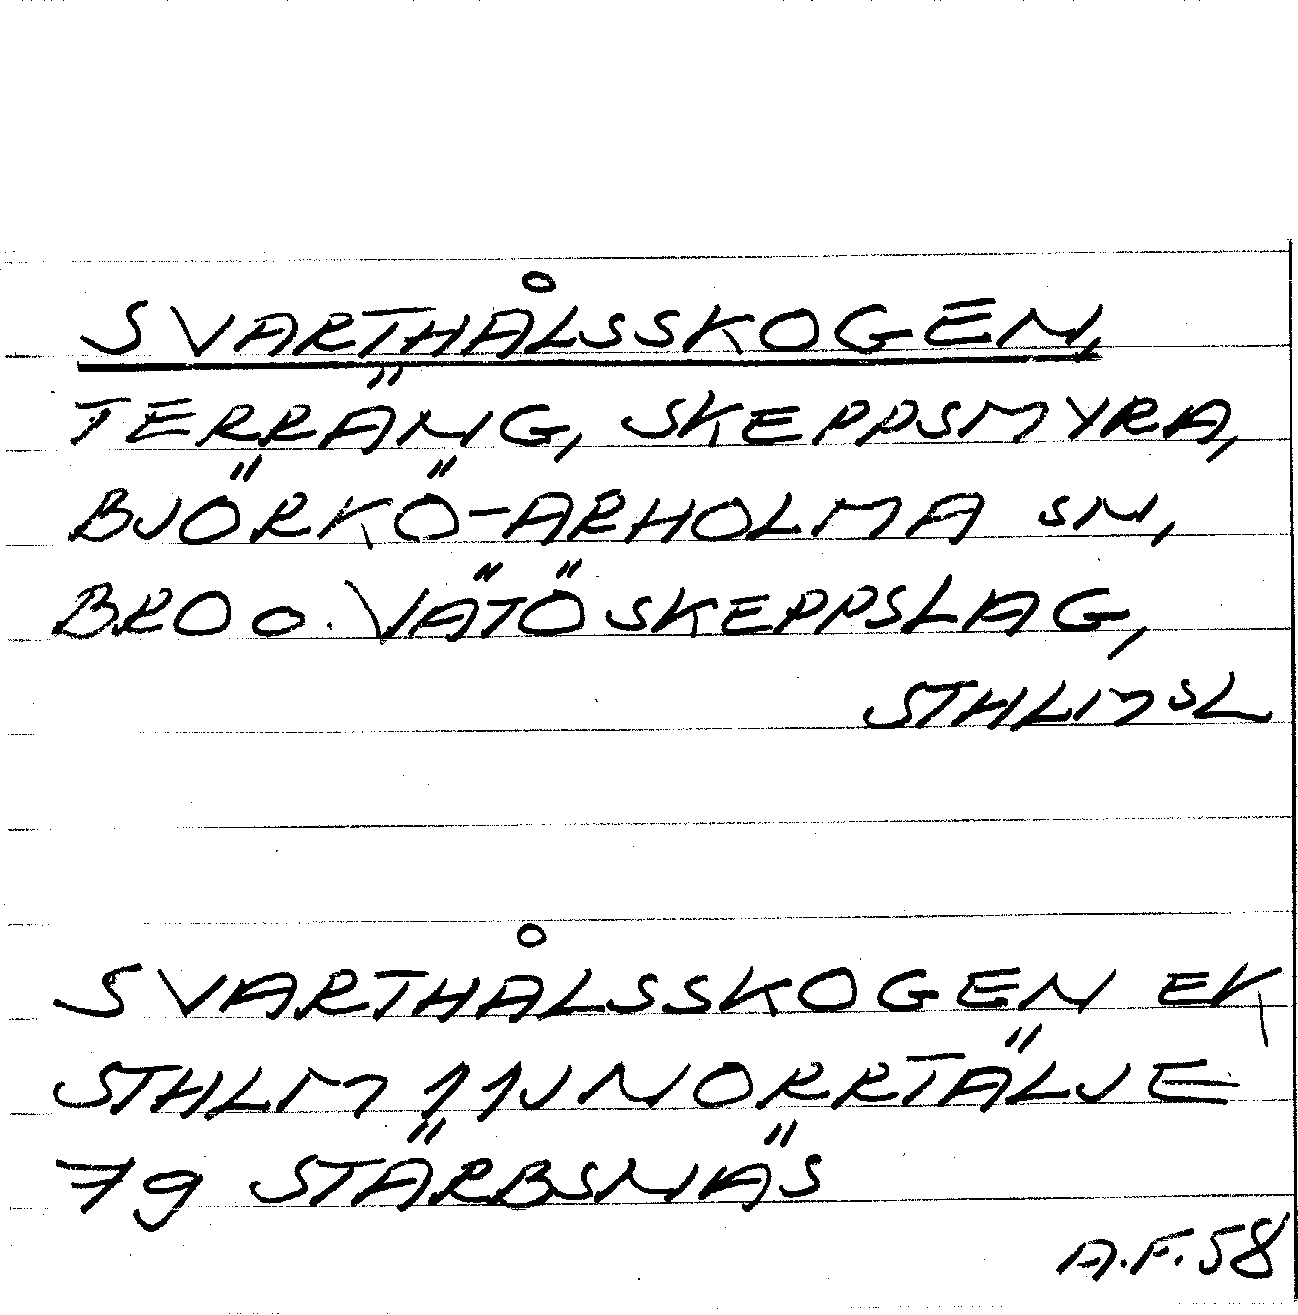 SVARTHÅLSSKOGEN,
TERRÄNG, SKEPPSMYRA,
BJÖRKÖ-ARHOLMA SN,
BRO o. VÄTÖ SKEPPSLAG,
STHLMSL
SVARTHÅLSSKOGEN EK
STHLM 11J NORRTÄLJE
79 STÄRBSNÄS
A.F. 58